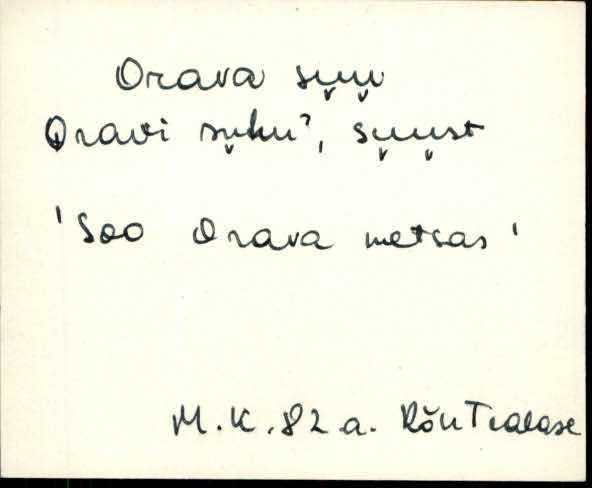 Orava su̬u̬
Oravi su̬hu?, su̬u̬st
'Soo Orava metsas'
M.K. 82 a. Rõu Tsalase